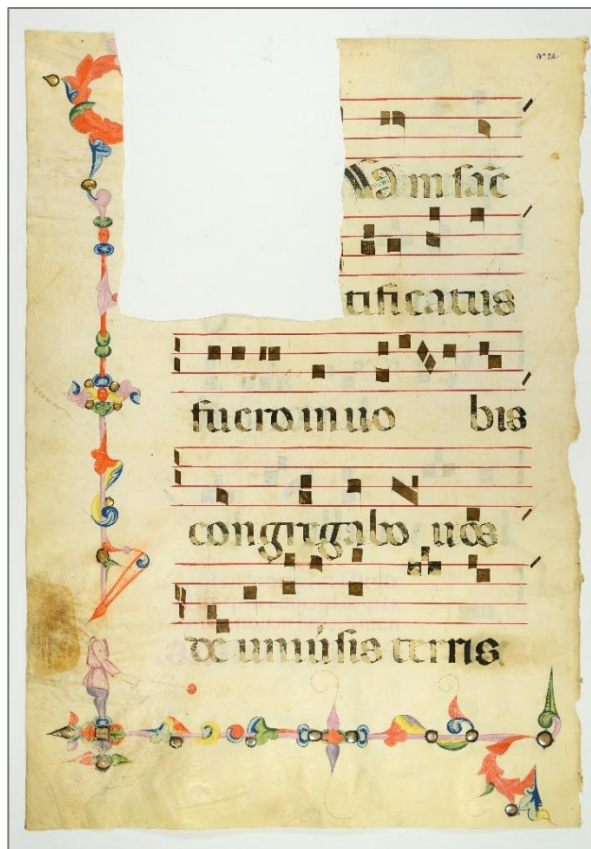 Um sāc
tificatus
fuero in uo bis
congregabo uos
de uniũsis terris